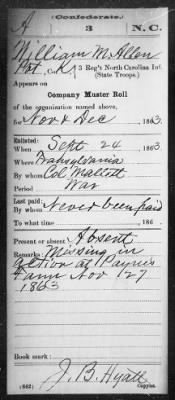 (Confederate.)
A 3 N. C.
William M. Allen
Pvt, Co. K, 3 Reg't North Carolina Inf.
(State Troops.)
Appears on
Company Muster Roll
of the organization named above,
for Nov & Dec, 1863.
Enlisted:
When Sept 24 1863
Where Transylvania
By whom Col Mallett
Period War
Last paid:
By whom Never been paid
To what time 186
Present or absent Absent
Remarks: Missing in
action at Paynes
Farm Nov 127
1863
Book mark:
J. B. Hyatt
(642) Copyist.